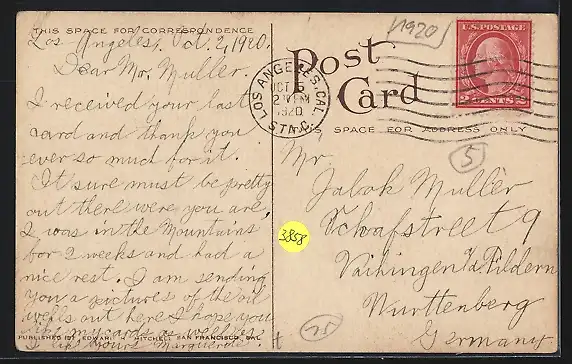 THIS SPACE FOR CORRESPONDENCE
Los Angeles, Oct. 2, 1920.
Dear Mr. Muller.
I received your last
card and thank you
ever so much for it.
It sure must be pretty
out there were you are,
I was in the Mountains
for 2 weeks and had a
nice rest. I am sending
you a pictures of the oil
wells out here I hope you
like my cards as well as
I like yours Marguerite
PUBLISHED BY EDWARD H. MITCHELL SAN FRANCISCO, CAL.
Post
Card
[1920]
U.S. POSTAGE
2 CENTS 2
LOS ANGELES, CAL.
OCT 5
PM
1920
STA.
THIS SPACE FOR ADDRESS ONLY
5
Mr.
Jakob Muller
Schafstreet 9
Vaihingen a/d Fildern
Wurttenberg
Germany
3858
25